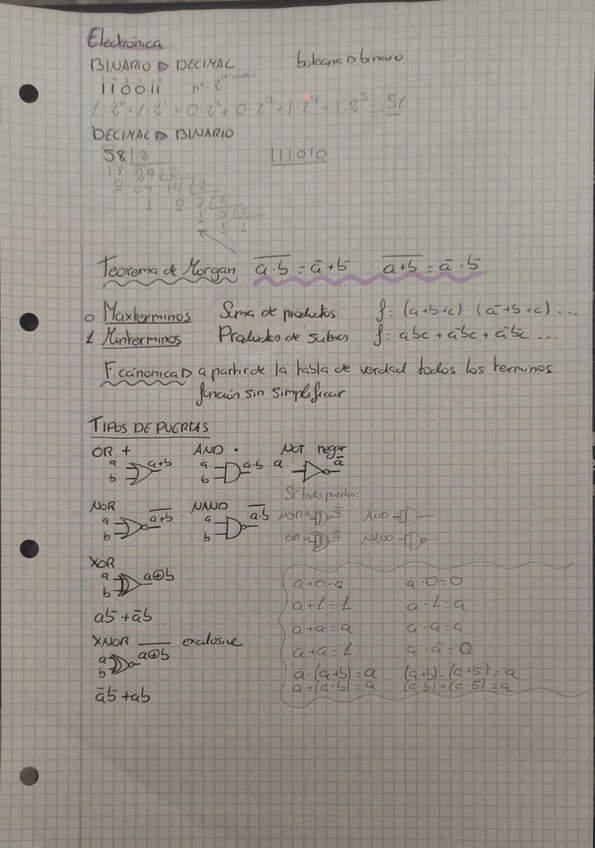 Electrónica
BINARIO ▷ DECIMAL boleana ▷ binario
110011
1·2⁰+1·2¹+0·2²+0·2³+1·2⁴+1·2⁵= 51
DECIMAL ▷ BINARIO
58 | 2 111010
18 29 | 2
0 09 14 | 2
1 0 7 | 2
1 3 | 2
1 1
Teorema de Morgan a̅·̅b̅ = a̅ + b̅ a̅+̅b̅ = a̅ · b̅
0 Maxterminos Suma de productos f: (a+b+c)·(a̅+b+c)...
1 Minterminos Productos de sumas f: abc + a̅bc + a̅b̅c ...
F. canonica ▷ a partir de la tabla de verdad todos los terminos.
función sin simplificar
TIPOS DE PUERTAS
OR + AND · NOT negar
a b a+b a b a·b a a̅
NOR NAND
a b a̅+̅b̅ a b a̅·̅b̅
NOR a a̅ AND
OR a a̅ NAND
XOR
a b a⊕b
ab̅ + a̅b
XNOR exclusive
a b a̅⊕̅b̅
a̅b̅ + ab
a+0=a a·0=0
a+1=1 a·1=a
a+a=a a·a=a
a+a̅=1 a·a̅=0
a·(a+b)=a (a+b)·(a+b̅)=a
a+(a·b)=a (a·b)+(a·b̅)=a